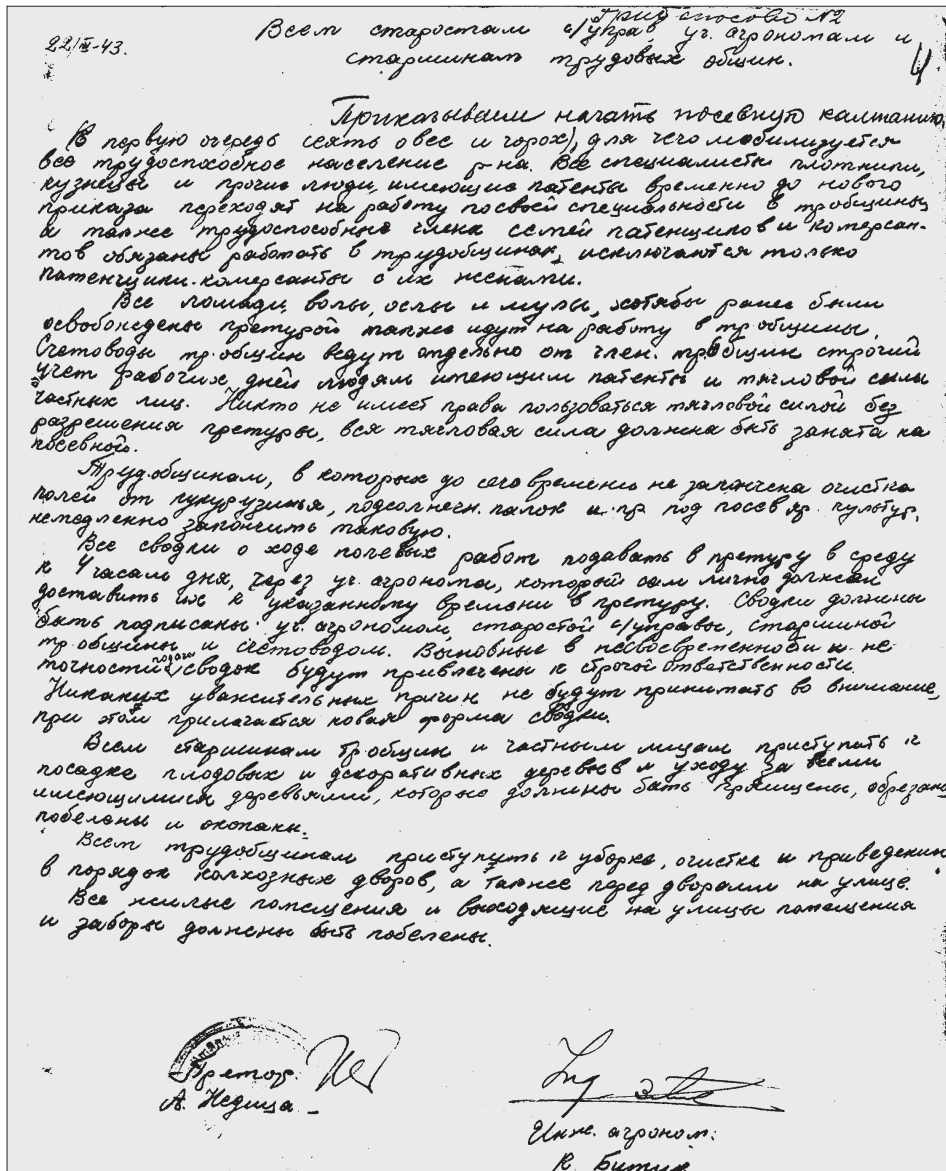 22/III-43.
Всем старостам с/управ, уч. агрономам и
старшинам трудовых общин.
Приказываем начать посевную кампанию,
(в первую очередь сеять овес и горох), для чего мобилизуется
все трудоспособное население р-на. Все специалисты плотники,
кузнецы и прочие люди, имеющие патенты временно до нового
приказа переходят на работу по своей специальности в тр.общины,
а также трудоспособные члены семей патенщиков и комерсан-
тов обязаны работать в трудобщинах, исключаются только
патенщики-комерсанты с их женами.
Все лошади, волы, ослы и мулы, хотябы ранее были
освобождены претурой также идут на работу в тр.общины.
Счетоводы тр.общин ведут отдельно от член. тр.общин строгий
учет рабочих дней людям имеющим патенты и тягловой силы
частных лиц. Никто не имеет права пользоваться тягловой силой без
разрешения претуры, вся тягловая сила должна быть занята на
посевной.
Труд.общинам, в которых до сего времени не закончена очистка
полей от кукурузинья, подсолнечн. палок и пр под посев яр. культур,
немедленно закончить таковую.
Все сводки о ходе полевых работ подавать в претуру в среду
к 4 часам дня, через уч. агронома, который сам лично должен
доставить их к указанному времени в претуру. Сводки должны
быть подписаны: уч. агрономом, старостой с/управы, старшиной
тр.общины и счетоводом. Виновные в несвоевременности и не
точности подачи сводок будут привлечены к строгой ответственности.
Никаких уважительных причин не будут принимать во внимание,
при этом прилагается новая форма сводки.
Всем старшинам тр.общин и частным лицам приступить к
посадке плодовых и декоративных деревьев и уходу за всеми
имеющимися деревьями, которые должны быть очищены, обрезаны
побелены и окопаны.
Всем трудобщинам приступить к уборке, очистке и приведению
в порядок колхозных дворов, а также перед дворами на улице.
Все жилые помещения и выходящие на улицы помещения
и заборы должны быть побелены.
Претор.
А. Недица
Инж. агроном: